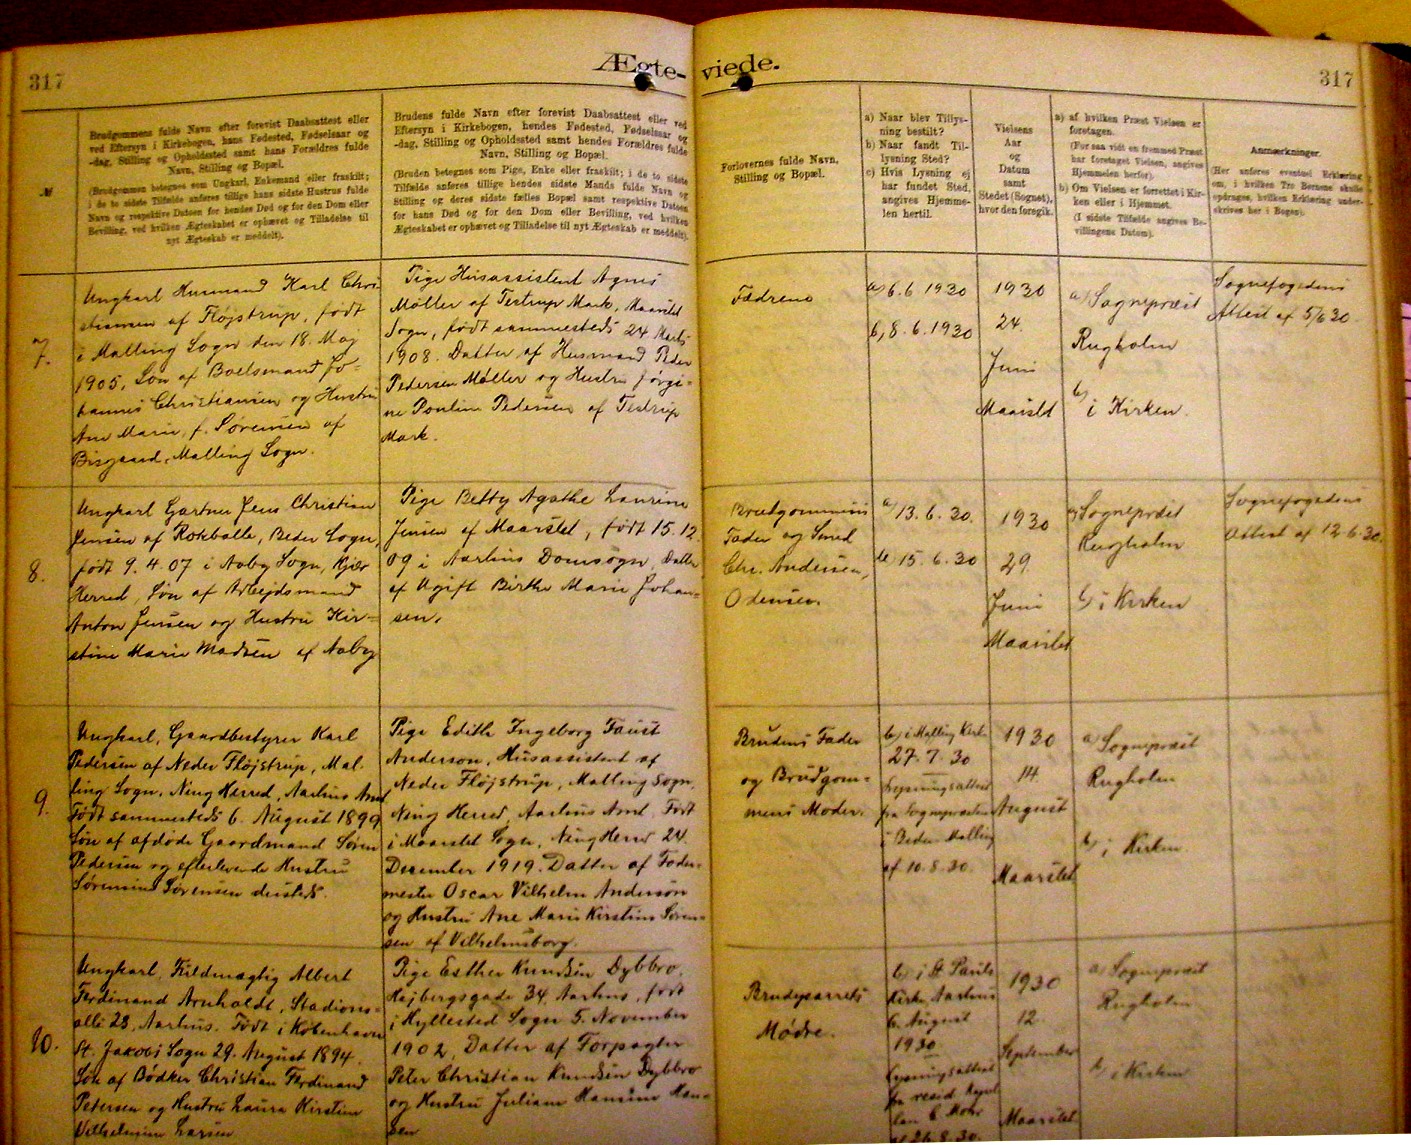 317
Ægte-
viede.
317
№
Brudgommens fulde Navn efter forevist Daabsattest eller
ved Eftersyn i Kirkebogen, hans Fødested, Fødselsaar og
-dag, Stilling og Opholdssted samt hans Forældres fulde
Navn, Stilling og Bopæl.
(Brudgommen betegnes som Ungkarl, Enkemand eller fraskilt;
i de to sidste Tilfælde anføres tillige hans sidste Hustrus fulde
Navn og respektive Datoen for hendes Død og for den Dom eller
Bevilling, ved hvilken Ægteskabet er ophævet og Tilladelse til
nyt Ægteskab er meddelt).
Brudens fulde Navn efter forevist Daabsattest eller ved
Eftersyn i Kirkebogen, hendes Fødested, Fødselsaar og
-dag, Stilling og Opholdssted samt hendes Forældres fulde
Navn, Stilling og Bopæl.
(Bruden betegnes som Pige, Enke eller fraskilt; i de to sidste
Tilfælde anføres tillige hendes sidste Mands fulde Navn og
Stilling og deres sidste fælles Bopæl samt respektive Datoen
for hans Død og for den Dom eller Bevilling, ved hvilken
Ægteskabet er ophævet og Tilladelse til nyt Ægteskab er meddelt).
Forlovernes fulde Navn,
Stilling og Bopæl.
a) Naar blev Tillys-
ning bestilt?
b) Naar fandt Til-
lysning Sted?
c) Hvis Lysning ej
har fundet Sted,
angives Hjemme-
len hertil.
Vielsens
Aar
og
Datum
samt
Stedet (Sognet),
hvor den foregik.
a) af hvilken Præst Vielsen er
foretagen.
(For saa vidt en fremmed Præst
har foretaget Vielsen, angives
Hjemmelen herfor).
b) Om Vielsen er forrettet i Kir-
ken eller i Hjemmet.
(I sidste Tilfælde angives Be-
villingens Datum).
Anmærkninger.
(Her anføres eventuel Erklæring
om, i hvilken Tro Børnene skulle
opdrages, hvilken Erklæring under-
skrives her i Bogen).
7.
Ungkarl Husmand Karl Chri-
stiansen af Fløjstrup, født
i Malling Sogn den 18. Maj
1905, Søn af Boelsmand Jo-
hannes Christiansen og Hustru
Ane Marie, f. Sørensen af
Bisgaard, Malling Sogn.
Pige Husassistent Agnes
Møller af Testrup Mark, Maarslet
Sogn, født sammesteds 24 Marts
1908. Datter af Husmand Peder
Pedersen Møller og Hustru Jørgi-
ne Pouline Pedersen af Testrup
Mark.
Fædrene
a) 6.6 1930
b, 8.6.1930
1930
24.
Juni
Maarslet
a) Sognepræst
Rugholm
b) i Kirken.
Sognefogedens
Attest af 5/6 30.
8.
Ungkarl Gartner Jens Christian
Jensen af Rokballe, Beder Sogn,
født 9.4.07 i Aaby Sogn, Hjær
Herred, Søn af Arbejdsmand
Anton Jensen og Hustru Kir-
stine Marie Madsen af Aaby
Pige Betty Agathe Laurine
Jensen af Maarslet, født 15.12.
09 i Aarhus Domsogn, Datter
af Ugift Birthe Marie Johan-
sen.
Brudgommens
Fader og Smed
Chr. Andersen,
Odensen.
a) 13.6.30.
b) 15.6.30
1930
29.
Juni
Maarslet
a) Sognepræst
Rugholm
b) i Kirken
Sognefogedens
Attest af 12.6.30.
9.
Ungkarl, Gaardbestyrer Karl
Pedersen af Neder Fløjstrup, Mal-
ling Sogn, Ning Herred, Aarhus Amt
Født sammesteds 6. August 1899
Søn af afdøde Gaardmand Søren
Pedersen og efterlevende Hustru
Sørensine Sørensen dersteds.
Pige Edith Ingeborg Faust
Anderson, Husassistent af
Neder Fløjstrup, Malling Sogn,
Ning Herred, Aarhus Amt. Født
i Maarslet Sogn, Ning Herred 24.
December 1919. Datter af Foder-
mester Oscar Vilhelm Anderson
og Hustru Ane Marie Kirstine Søren-
sen af Vilhelmsborg.
Brudens Fader
og Brudgom-
mens Moder.
b) i Malling Kirke
27.7.30
Lysningsattest
fra Sognepræsten
i Beder-Malling
af 10.8.30.
1930
14.
August
Maarslet
a) Sognepræst
Rugholm
b) i Kirken.
10.
Ungkarl, Fuldmægtig Albert
Ferdinand Arnholdt, Stadions-
alle 28, Aarhus. Født i København
St. Jakobs Sogn 29. August 1894.
Søn af Bødker Christian Ferdinand
Petersen og Hustru Laura Kirstine
Vilhelmine Larsen
Pige Esther Knudsen Dybbro,
Højbergsgade 34, Aarhus, født
i Hyllested Sogn 5. November
1902, Datter af Forpagter
Peter Christian Knudsen Dybbro
og Hustru Juliane Hansine Han-
sen
Brudeparrets
Mødre.
b) i St. Pauls
Kirke Aarhus
6. August
1930
Lysningsattest
fra resid. Kapel-
lan E. Mohr
af 26.8.30.
1930
12.
September
Maarslet
a) Sognepræst
Rugholm
b) i Kirken